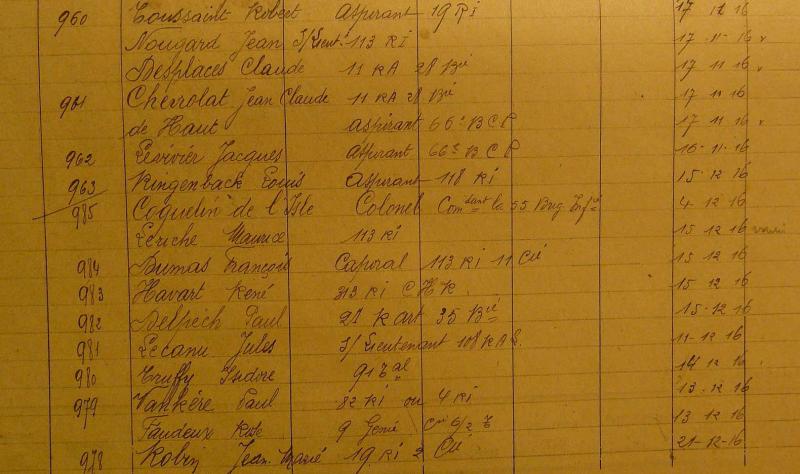 960 Toussaint Robert Aspirant 19 RI 17 11 16
Nougard Jean S/Lieut. 113 RI 17-11-16 v
Desplaces Claude 11 RA 28 Bie 17 11 16 v
961 Chevrolat Jean Claude 11 RA 28 Bie 17 11 16
de Haut aspirant 66e B C P 17 11 16 v
962 Levivier Jacques Aspirant 66e B C P 16-11-16
963 Ringenback Louis Aspirant 118 RI 15-12 16
985 Coquelin de l'Isle Colonel Comdant la 55 Brig Infie 4-12 16
Leriche Maurice 113 RI 15 12 16
984 Dumas François Caporal 113 RI 11 Cie 15 12 16
983 Havart René 313 RI C H R 15 12 16
982 Delpech Paul 21 R art 35 Bie 15-12 16
981 Lecanu Jules S/Lieutenant 108 RA L. 11-12 16
980 Truffy Isidore 91 Bal 14 12 16
979 Vankère Paul 82 RI ou 4 RI 13-12 16
9 Genie Cie 6/2 T 13 12 16
978 Robin Jean Marie 19 RI 2 Cie 21-12-16